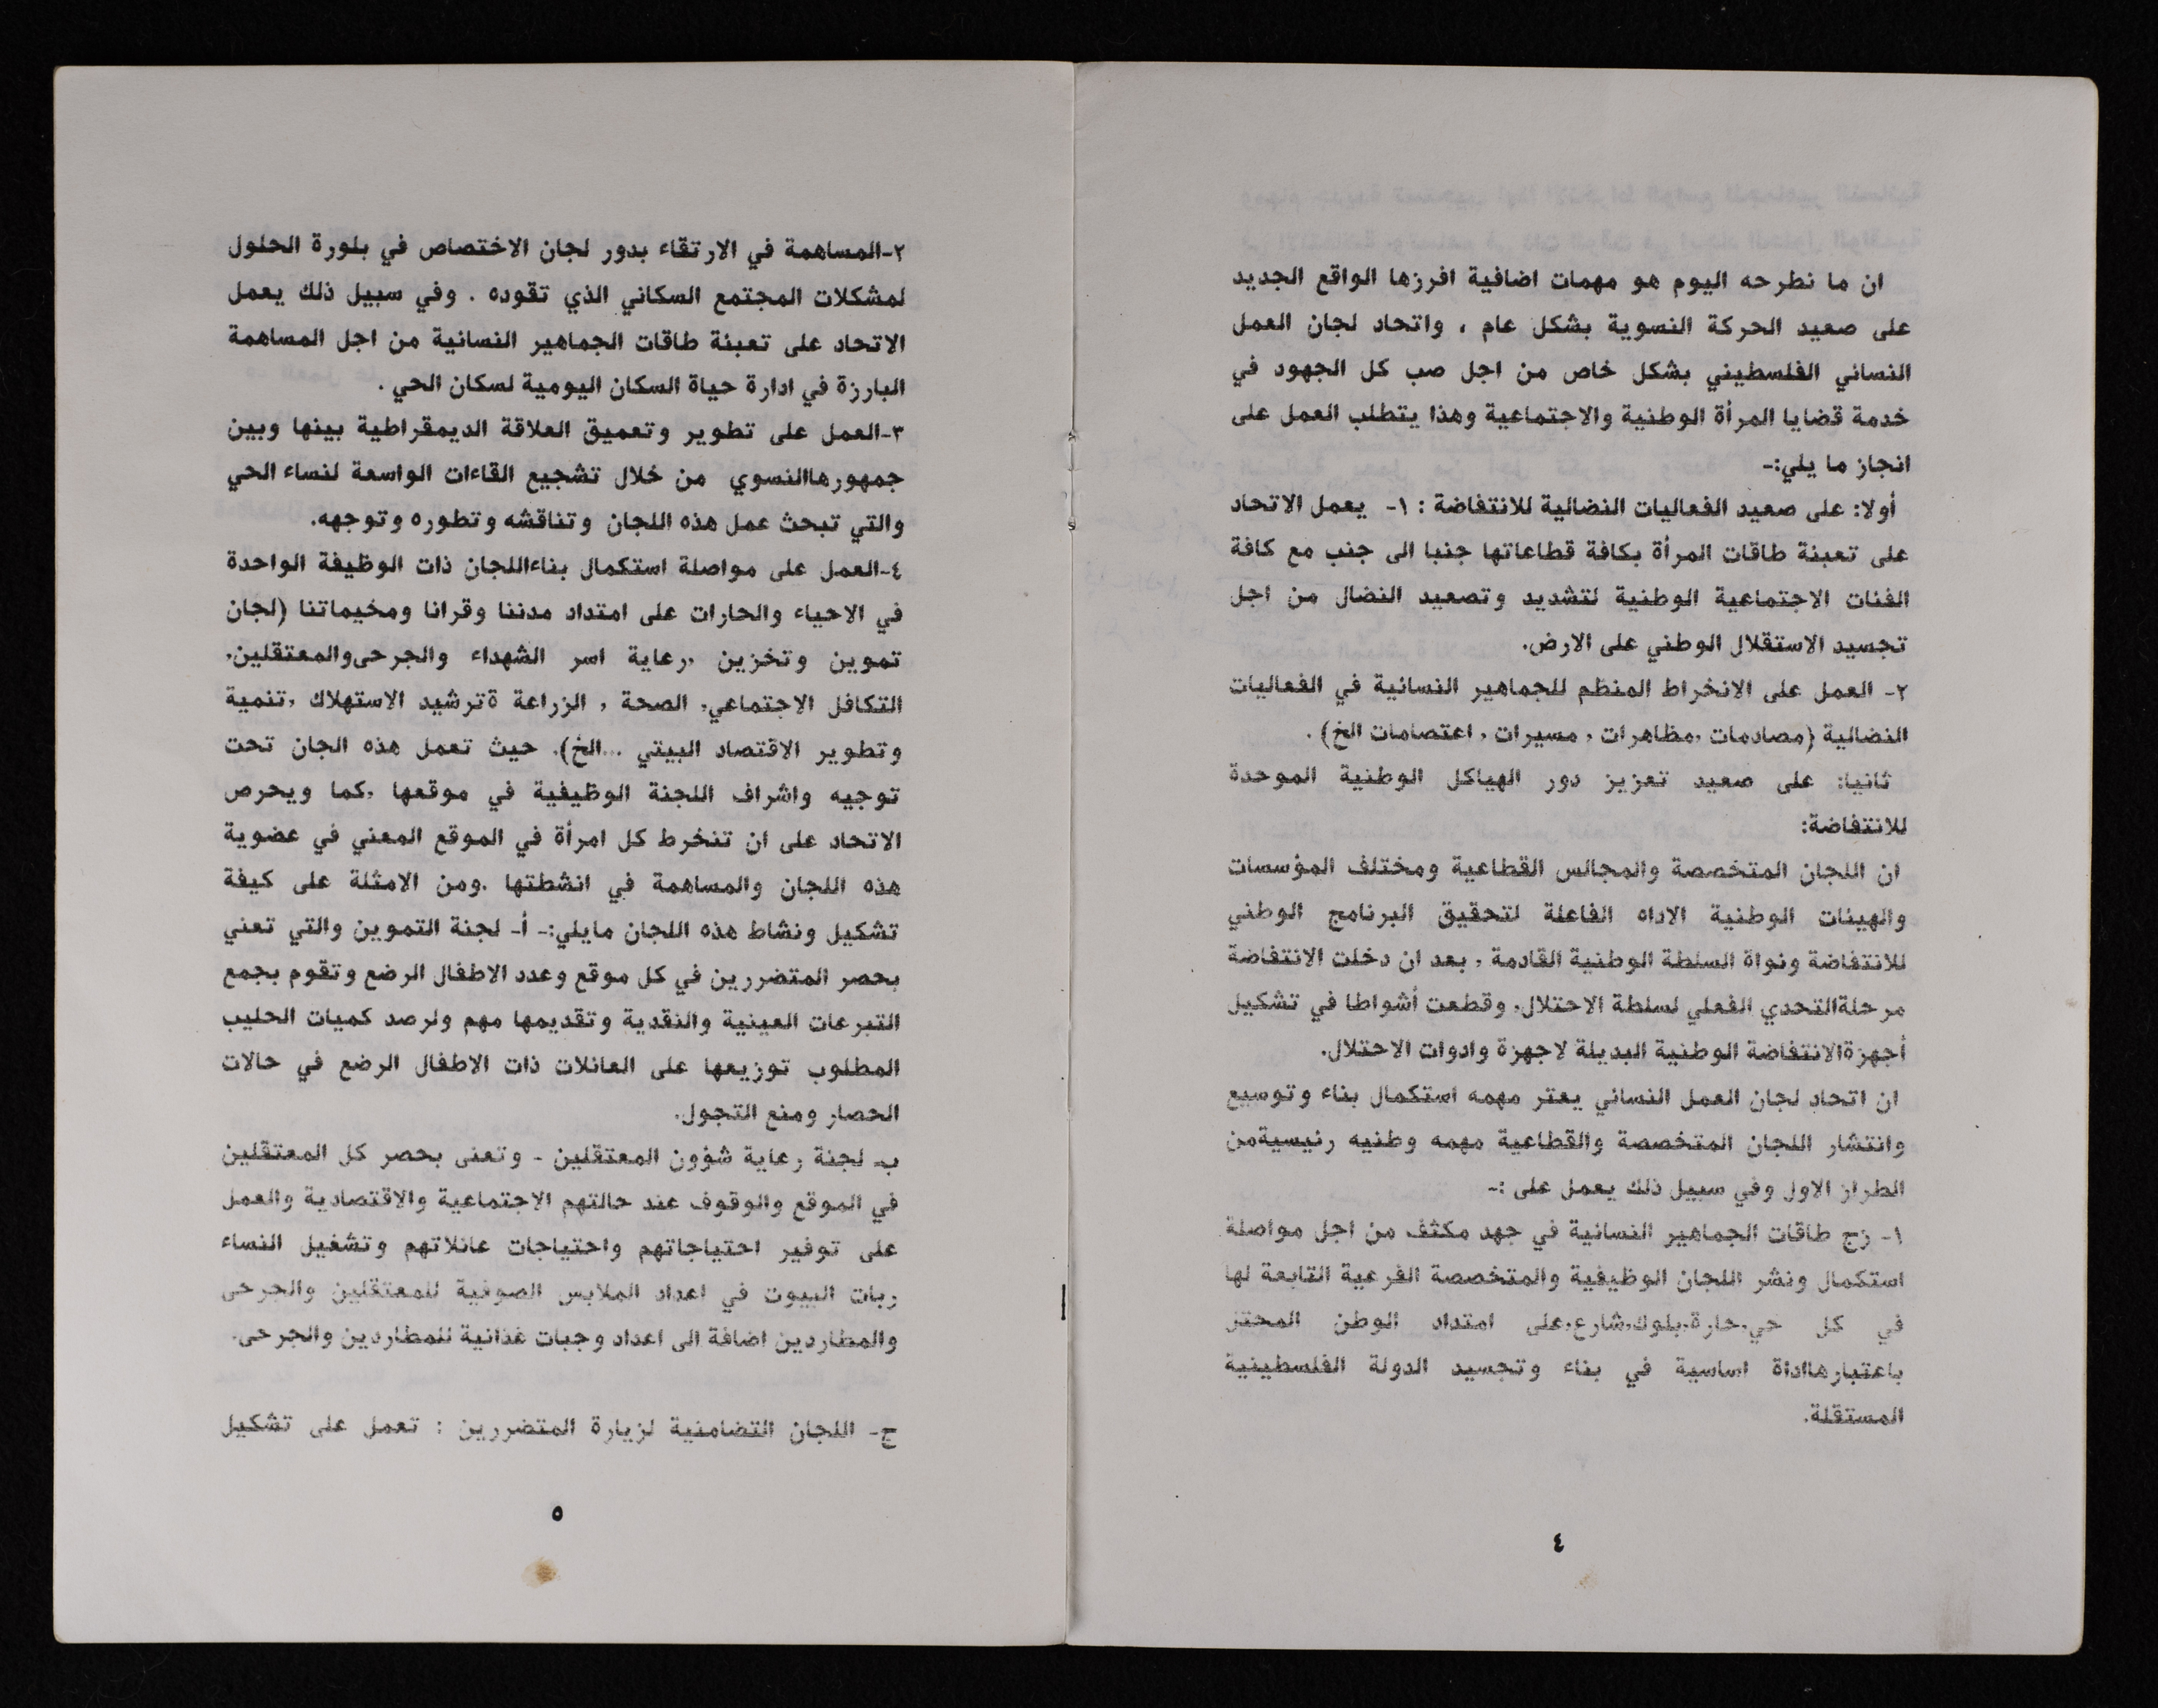 ان ما نطرحه اليوم هو مهمات اضافية افرزها الواقع الجديد
على صعيد الحركة النسوية بشكل عام ، واتحاد لجان العمل
النسائي الفلسطيني بشكل خاص من اجل صب كل الجهود في
خدمة قضايا المرأة الوطنية والاجتماعية وهذا يتطلب العمل على
انجاز ما يلي:-
أولا: على صعيد الفعاليات النضالية للانتفاضة : ١- يعمل الاتحاد
على تعبئة طاقات المرأة بكافة قطاعاتها جنبا الى جنب مع كافة
الفئات الاجتماعية الوطنية لتشديد وتصعيد النضال من اجل
تجسيد الاستقلال الوطني على الارض.
٢- العمل على الانخراط المنظم للجماهير النسائية في الفعاليات
النضالية (مصادمات ,مظاهرات , مسيرات , اعتصامات الخ) .
ثانيا: على صعيد تعزيز دور الهياكل الوطنية الموحدة
للانتفاضة:
ان اللجان المتخصصة والمجالس القطاعية ومختلف المؤسسات
والهيئات الوطنية الاداه الفاعلة لتحقيق البرنامج الوطني
للانتفاضة ونواة السلطة الوطنية القادمة , بعد ان دخلت الانتفاضة
مرحلةالتحدي الفعلي لسلطة الاحتلال, وقطعت أشواطا في تشكيل
أجهزةالانتفاضة الوطنية البديلة لاجهزة وادوات الاحتلال.
ان اتحاد لجان العمل النسائي يعتر مهمه استكمال بناء وتوسيع
وانتشار اللجان المتخصصة والقطاعية مهمه وطنيه رئيسيةمن
الطراز الاول وفي سبيل ذلك يعمل على :-
١- زج طاقات الجماهير النسائية في جهد مكثف من اجل مواصلة
استكمال ونشر اللجان الوظيفية والمتخصصة الفرعية التابعة لها
في كل حي,حارة,بلوك,شارع,على امتداد الوطن المحتل
باعتبارهااداة اساسية في بناء وتجسيد الدولة الفلسطينية
المستقلة.
٤
٢-المساهمة في الارتقاء بدور لجان الاختصاص في بلورة الحلول
لمشكلات المجتمع السكاني الذي تقوده . وفي سبيل ذلك يعمل
الاتحاد على تعبئة طاقات الجماهير النسائية من اجل المساهمة
البارزة في ادارة حياة السكان اليومية لسكان الحي .
٣-العمل على تطوير وتعميق العلاقة الديمقراطية بينها وبين
جمهورهاالنسوي من خلال تشجيع القاءات الواسعة لنساء الحي
والتي تبحث عمل هذه اللجان وتناقشه وتطوره وتوجهه.
٤-العمل على مواصلة استكمال بناءاللجان ذات الوظيفة الواحدة
في الاحياء والحارات على امتداد مدننا وقرانا ومخيماتنا (لجان
تموين وتخزين ,رعاية اسر الشهداء والجرحىوالمعتقلين,
التكافل الاجتماعي, الصحة , الزراعة ةترشيد الاستهلاك ,تنمية
وتطوير الاقتصاد البيتي ...الخ). حيث تعمل هذه الجان تحت
توجيه واشراف اللجنة الوظيفية في موقعها ,كما ويحرص
الاتحاد على ان تنخرط كل امرأة في الموقع المعني في عضوية
هذه اللجان والمساهمة في انشطتها .ومن الامثلة على كيفة
تشكيل ونشاط هذه اللجان مايلي:- أ- لجنة التموين والتي تعني
بحصر المتضررين في كل موقع وعدد الاطفال الرضع وتقوم بجمع
التبرعات العينية والنقدية وتقديمها مهم ولرصد كميات الحليب
المطلوب توزيعها على العائلات ذات الاطفال الرضع في حالات
الحصار ومنع التجول.
ب- لجنة رعاية شؤون المعتقلين - وتعنى بحصر كل المعتقلين
في الموقع والوقوف عند حالتهم الاجتماعية والاقتصادية والعمل
على توفير احتياجاتهم واحتياجات عائلاتهم وتشغيل النساء
ربات البيوت في اعداد الملابس الصوفية للمعتقلين والجرحى
والمطاردين اضافة الى اعداد وجبات غذائية للمطاردين والجرحى.
ج- اللجان التضامنية لزيارة المتضررين : تعمل على تشكيل
٥